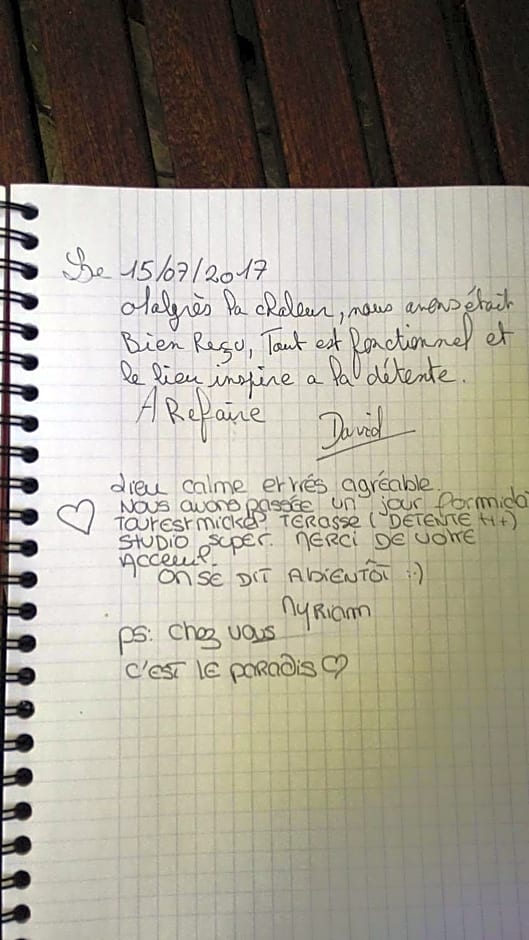 Le 15/07/2017
Malgrès la chaleur, nous avons était
Bien Reçu, Tout est fonctionnel et
le lieu inspire a la détente.
A Refaire
David
Lieu calme et très agréable.
Nous avons passée un jour formida
Tout est nickel TERASSE (DETENTE ++)
STUDIO super. MERCI DE VOTRE
Acceuil.
ON SE DIT ABIENTÔT :-)
MYRIAM
ps: chez vous
C'EST LE PARADIS ♡